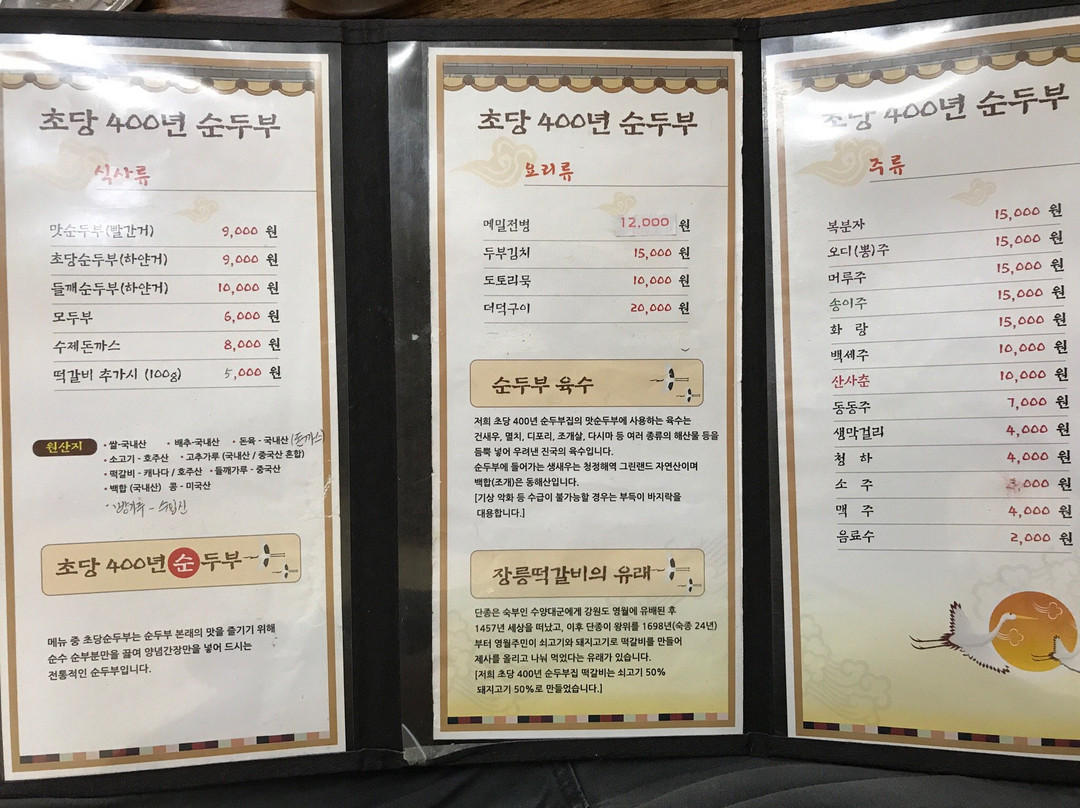 초당 400년 순두부
식사류
맛순두부(빨간거) 9,000 원
초당순두부(하얀거) 9,000 원
들깨순두부(하얀거) 10,000 원
모두부 6,000 원
수제돈까스 8,000 원
떡갈비 추가시 (100g) 5,000 원
원산지
• 쌀-국내산 • 배추-국내산 • 돈육 - 국내산 (돈까스)
• 소고기 - 호주산 • 고추가루 (국내산 / 중국산 혼합)
• 떡갈비 - 캐나다 / 호주산 • 들깨가루 - 중국산
• 백합 (국내산) 콩 - 미국산
초당 400년 순두부
메뉴 중 초당순두부는 순두부 본래의 맛을 즐기기 위해
순수 순부분만을 끓여 양념간장만을 넣어 드시는
전통적인 순두부입니다.
초당 400년 순두부
요리류
메밀전병 12,000 원
두부김치 15,000 원
도토리묵 10,000 원
더덕구이 20,000 원
순두부 육수
저희 초당 400년 순두부집의 맛순두부에 사용하는 육수는
건새우, 멸치, 디포리, 조개살, 다시마 등 여러 종류의 해산물 등을
듬뿍 넣어 우려낸 진국의 육수입니다.
순두부에 들어가는 생새우는 청정해역 그린랜드 자연산이며
백합(조개)은 동해산입니다.
[기상 악화 등 수급이 불가능할 경우는 부득이 바지락을
대용합니다.]
장릉떡갈비의 유래
단종은 숙부인 수양대군에게 강원도 영월에 유배된 후
1457년 세상을 떠났고, 이후 단종이 왕위를 1698년(숙종 24년)
부터 영월주민이 쇠고기와 돼지고기로 떡갈비를 만들어
제사를 올리고 나눠 먹었다는 유래가 있습니다.
[저희 초당 400년 순두부집 떡갈비는 쇠고기 50%
돼지고기 50%로 만들었습니다.]
초당 400년 순두부
주류
복분자 15,000 원
오디(뽕)주 15,000 원
머루주 15,000 원
송이주 15,000 원
화 랑 15,000 원
백세주 10,000 원
산사춘 10,000 원
동동주 7,000 원
생막걸리 4,000 원
청 하 4,000 원
소 주 ,000 원
맥 주 4,000 원
음료수 2,000 원